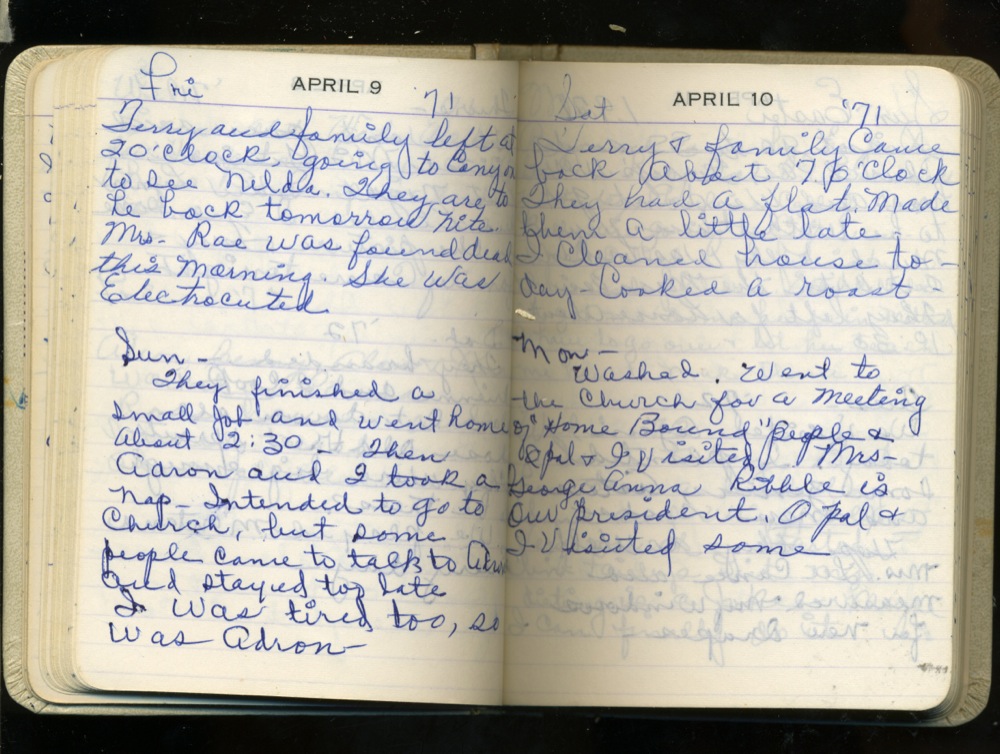 Fri APRIL 9 71
Terry and family left at
2 O'clock, going to Canyon
to see Nelda. They are to
be back tomorrow nite.
Mrs. Rae was found dead
this morning. She was
Electrocuted
Sun -
They finished a
small job and went home
about 2:30 - Then
Adron and I took a
nap. Intended to go to
Church, but some
people came to talk to Adron
and stayed too late
I was tired too, so
was Adron -
Sat APRIL 10 '71
Terry & family Came
back About 7 O'Clock
They had a flat. Made
them a little late -
I Cleaned house to-
day - Cooked a roast
Mon -
Washed. Went to
the Church for a Meeting
of "Home Bound" people &
Opal & I Visited Mrs-
George Anna Ribble is
Our president. Opal &
I Visited some